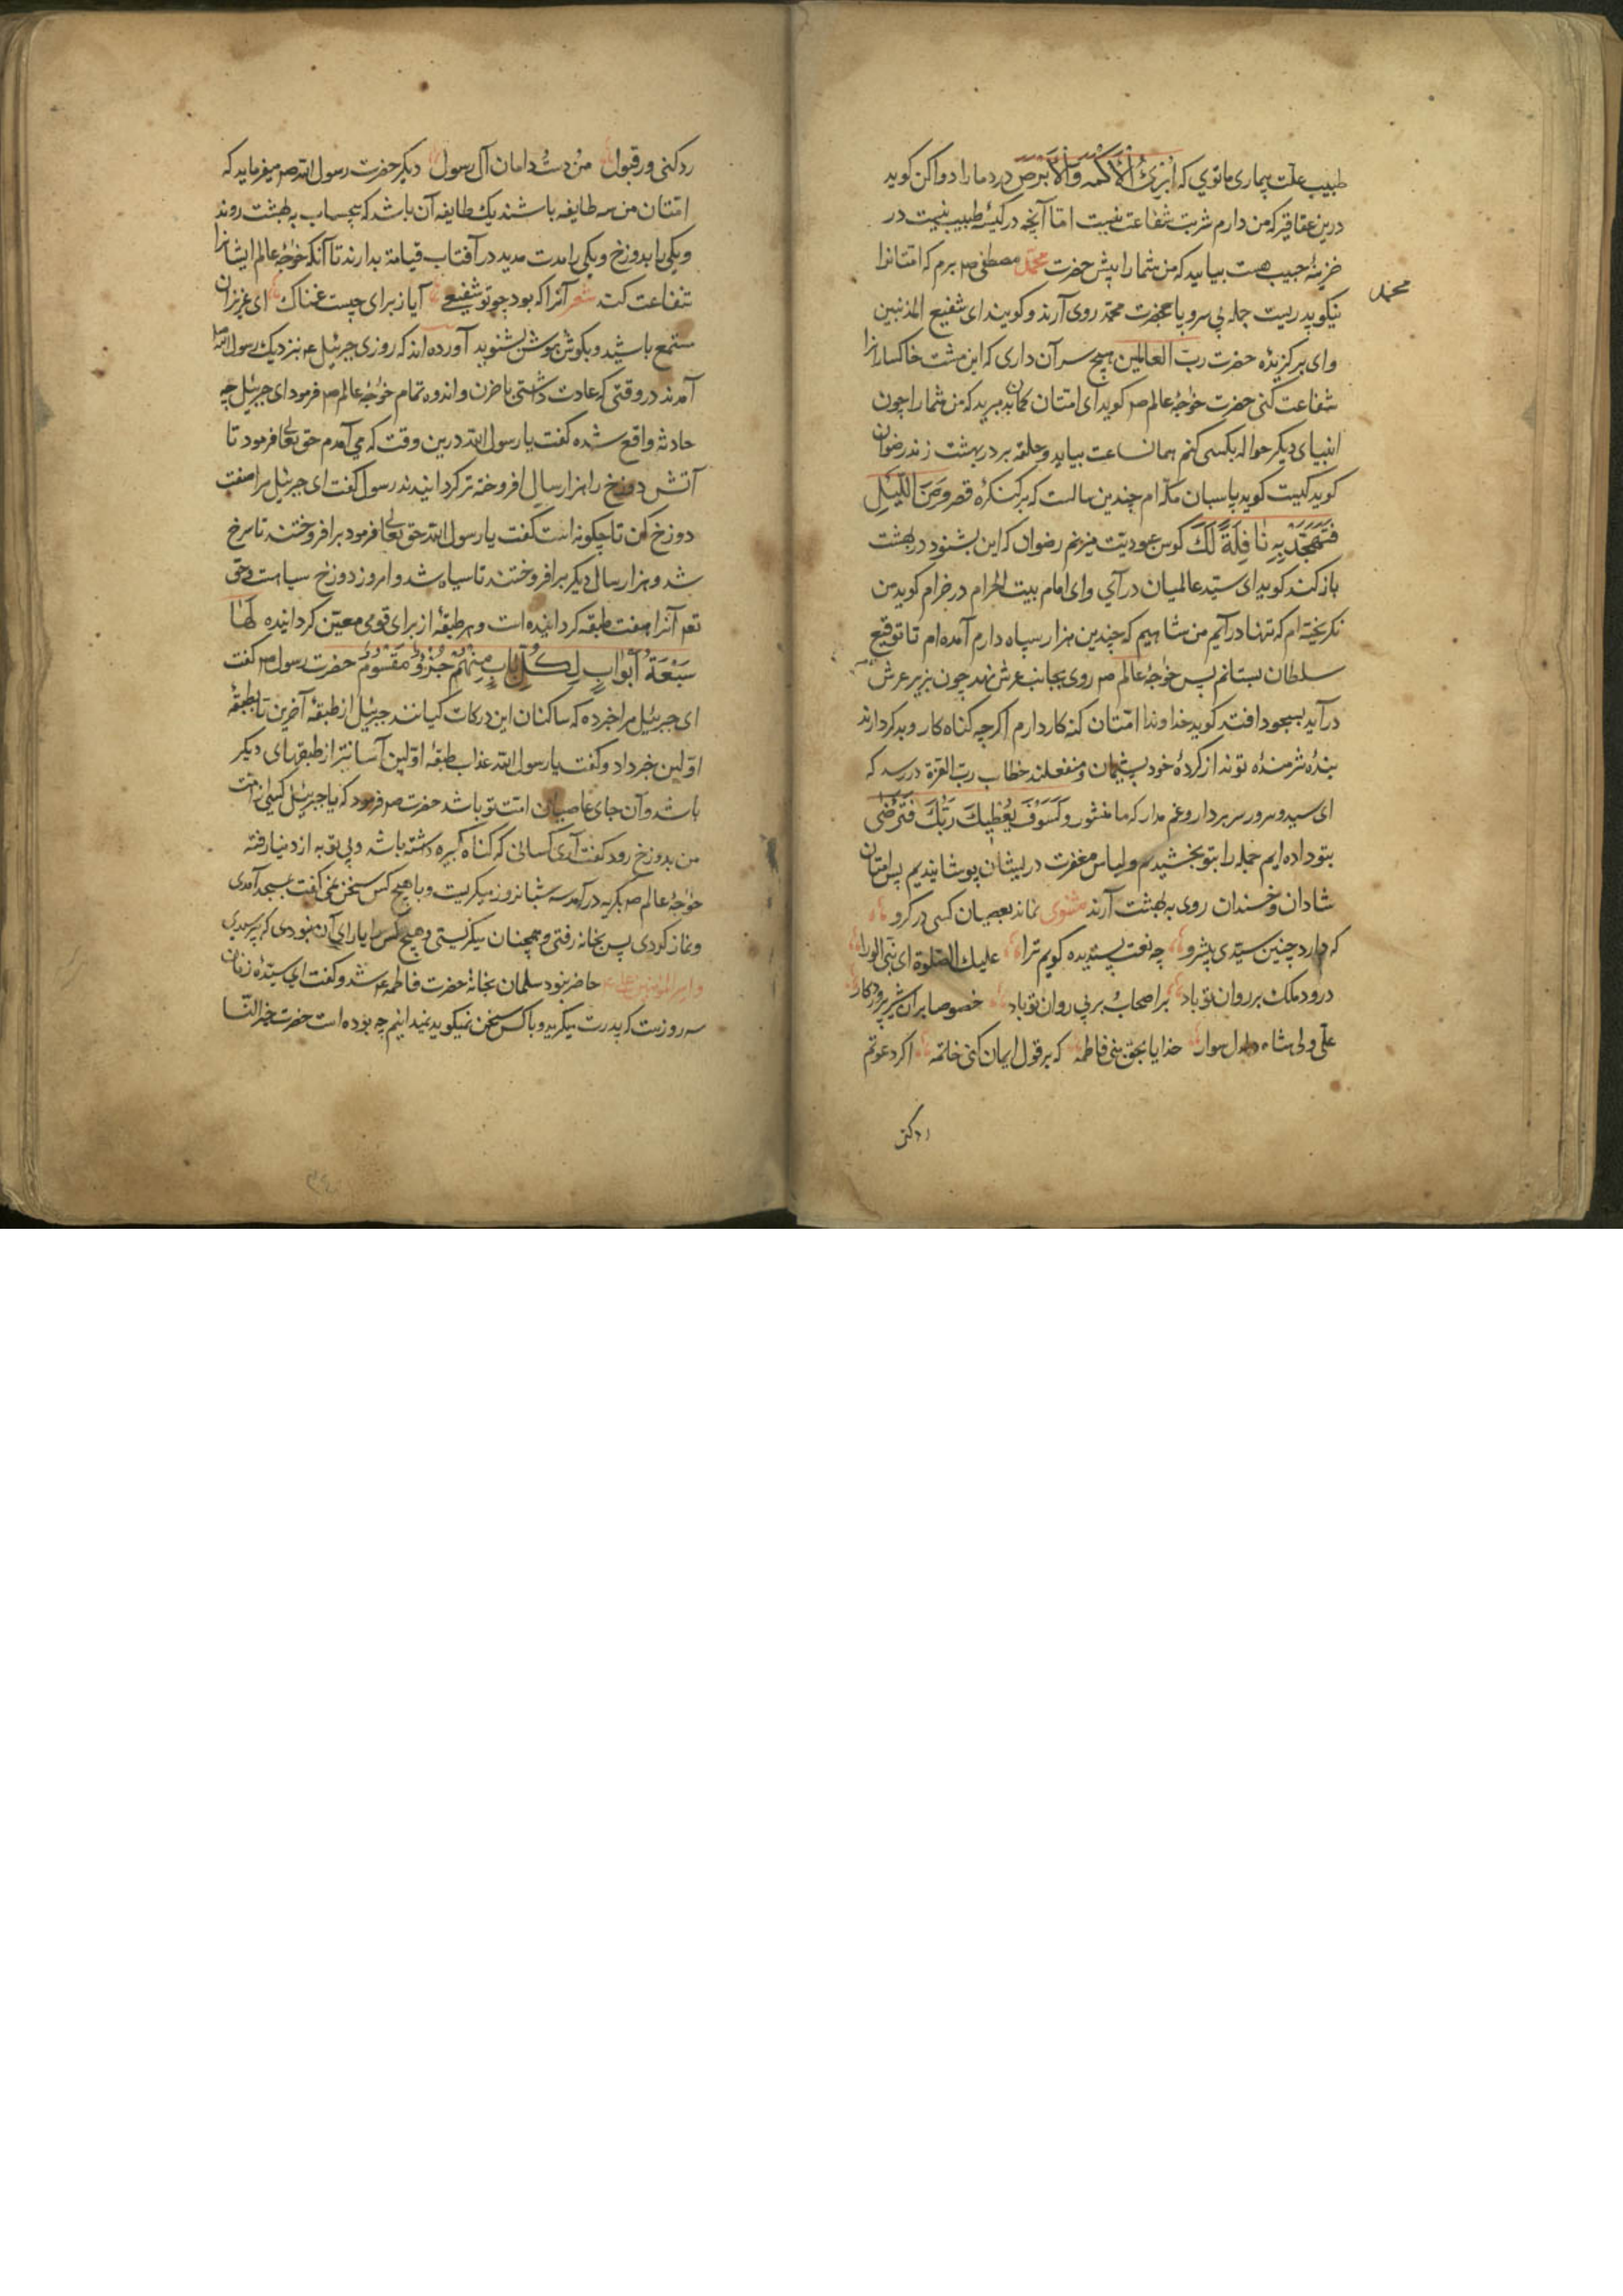 طبیب علت بیماری ما توی که اُبْرِئُ الْأَکْمَهَ وَالْأَبْرَصَ درد ما را دوا کن کوید
درین عقاقیر که من دارم شربت شفاعت نیست اما آنچه در کیسهٔ طبیب نیست در
خزینهٔ حبیب هست بیایید که من شما را پیش حضرت محمّد مصطفی ص برم که امتانرا
محمد
نیکو پدریست جمله بی سر و پا بحضرت محمد روی آرند و کویند ای شفیع المذنبین
و ای برکزیدهٔ حضرت ربّ العالمین هیچ سر آن داری که این مشت خاکسارانرا
شفاعت کنی حضرت خواجهٔ عالم ص کوید ای امتان کمان بد مبرید که من شما را چون
انبیای دیکر حواله بکسی کنم همان ساعت بیاید و حلقه بر در بهشت زند رضوان
کوید کیست کوید پاسبان مکه ام چندین سالست که بر کنکرهٔ قصر وَمِنَ اللَّیْلِ
فَتَهَجَّدْ بِهِ نَافِلَةً لَکَ کوس عبودیّت میزنم رضوان که این بشنود در بهشت
باز کند کوید ای سیّد عالمیان در آی و ای امام بیت الحرام در خرام کوید من
نکریخته ام که تنها در آیم من شاهیم که چندین هزار سپاه دارم آمده ام تا توقیع
سلطان بستانم پس خواجهٔ عالم ص روی بجانب عرش نهد چون بزیر عرش
در آید بسجود افتد کوید خداوندا امّتان کنه کار دارم اکرچه کناه کار و بد کردارند
بندهٔ شرمندهٔ تو اند از کردهٔ خود پشیمان و منفعلند خطاب ربّ العزة در رسد که
ای سید و سرور سر بردار و غم مدار که ما منشور وَلَسَوْفَ یُعْطِیکَ رَبُّکَ فَتَرْضَی
بتو داده ایم جمله را بتو بخشیدیم و لباس مغفرت در ایشان پوشانیدیم پس امتان
شادان و خندان روی به بهشت آرند مثنوی نماند بعصیان کسی در کرو
که دارد چنین سیّدی پیشرو چه نعت پسندیده کویم ترا علیک الصلوة ای نبی الورا
درود ملک بر روان تو باد بر اصحاب و بر پی روان تو باد خصوصا بران شیر پروردکار
علی ولی شاه دلدل سوار خدایا بحق بنی فاطمه که بر قول ایمان کنی خاتمه اکر دعوتم
رد کنی
رد کنی ور قبول من و دست و دامان آل رسول دیکر حضرت رسول الله ص میفرماید که
امتان من سه طایفه باشند یک طایفه آن باشد که بیحساب به بهشت روند
و یکی را بدوزخ و یکی را مدت مدید در آفتاب قیامة بدارند تا آنکه خواجهٔ عالم ایشانرا
شفاعت کند شعر آنرا که بود چو تو شفیعی آیا ز برای چیست غمناک ای عزیزان
مستمع باشید و بکوش هوش بشنوید آورده اند که روزی جبرئیل ع بنزدیک رسول الله
آمدند در وقتی که عادت داشتی با حزن و اندوه تمام خواجهٔ عالم ص فرمود ای جبرئیل چه
حادثه واقع شده کفت یا رسول الله درین وقت که می آمدم حق تعالی فرمود تا
آتش دوزخ را هزار سال افروخته تر کردانیدند رسول کفت ای جبرئیل مرا صفت
دوزخ کن تا چکونه است کفت یا رسول الله حق تعالی فرمود بر افروختند تا سرخ
شد و هزار سال دیکر بر افروختند تا سیاه شد و امروز دوزخ سیاهست و حق
تعه آنرا هفت طبقه کردانیده است و هر طبقهٔ از برای قومی معین کردانیده لَهَا
سَبْعَةُ أَبْوَابٍ لِکُلِّ بَابٍ مِنْهُمْ جُزْءٌ مَقْسُومٌ حضرت رسول ص کفت
ای جبرئیل مرا خبر ده که ساکنان این درکات کیانند جبرئیل از طبقهٔ آخرین تا بطبقهٔ
اوّلین خبر داد و کفت یا رسول الله عذاب طبقهٔ اوّلین آسانتر از طبقهای دیکر
باشد و آن جای عاصیان امّت تو باشد حضرت ص فرمود که یا جبرئیل کسی از امت
من بدوزخ رود کفت آری کسانی که کناه کبیره داشته باشد و بی توبه از دنیا رفته
خواجهٔ عالم ص بکریه در آمد سه شبانروز میکریست و با هیچ کس سخن نمی کفت بمسجد آمدی
و نماز کردی پس بخانه رفتی و همچنان میکریستی و هیچ کس را یارای آن نبودی که پرسیدی
و امیر المؤمنین علی ع حاضر نبود سلمان بخانهٔ حضرت فاطمه ع شد و کفت ای سیدهٔ زنان
سه روزست که پدرت میکرید و با کس سخن نمیکوید نمیدانیم چه بوده است حضرت خیر النسا